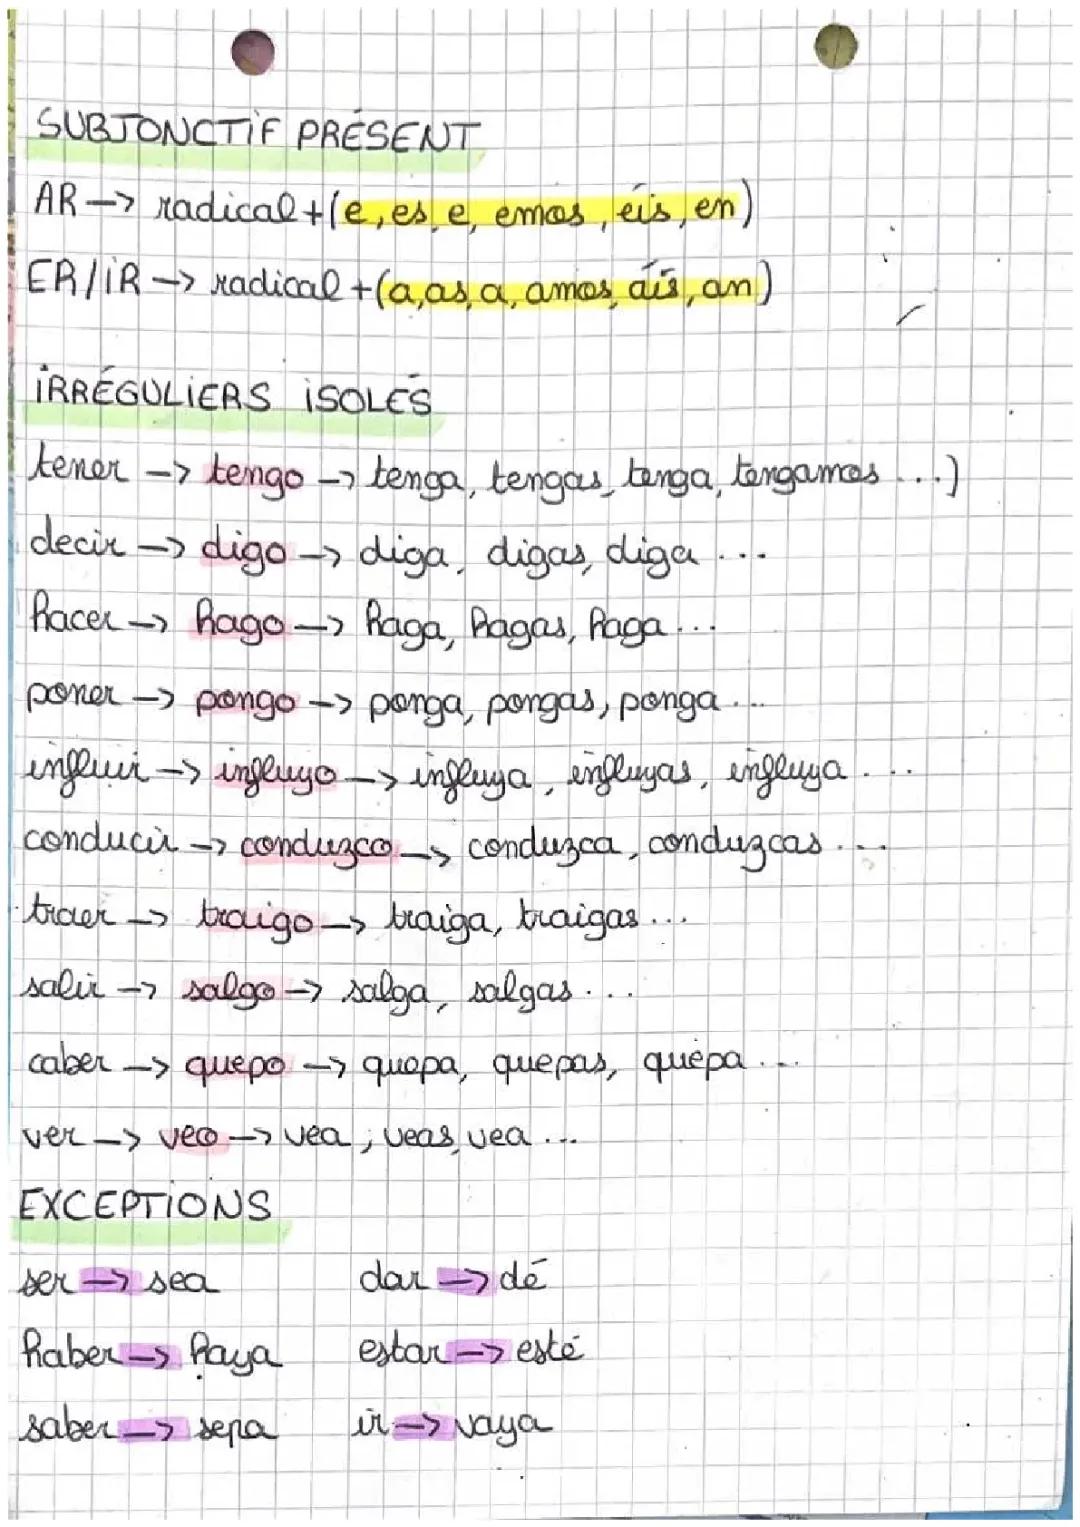 SUBJONCTIF PRÉSENT
AR -> radical + (e, es, e, emos, éis, en)
ER/IR -> radical + (a, as, a, amos, áis, an)
IRRÉGULIERS ISOLÉS
tener -> tengo -> tenga, tengas, tenga, tengamos ...)
decir -> digo -> diga, digas, diga ...
hacer -> hago -> haga, hagas, haga ...
poner -> pongo -> ponga, pongas, ponga ...
influir -> influyo -> influya, influyas, influya ...
conducir -> conduzco -> conduzca, conduzcas ...
traer -> traigo -> traiga, traigas ...
salir -> salgo -> salga, salgas ...
caber -> quepo -> quepa, quepas, quépa ...
ver -> veo -> vea, veas, vea ...
EXCEPTIONS
ser -> sea dar -> dé
haber -> haya estar -> esté
saber -> sepa ir -> vaya